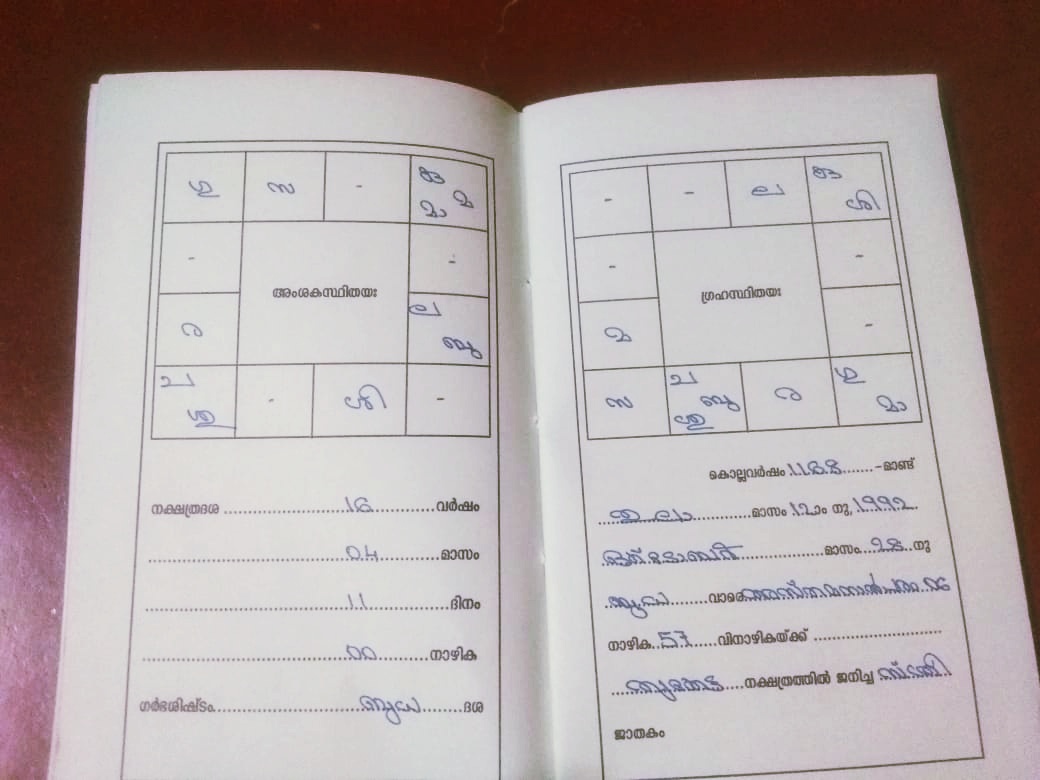 ഗു സ - കു മ മാ
- -
അംശകസ്ഥിതയഃ
ര ല ബു
ച ശു - ശി -
നക്ഷത്രദശ 16 വർഷം
04 മാസം
11 ദിനം
00 നാഴിക
ഗർഭശിഷ്ടം ബുധ ദശ
- - ല കു ശി
- -
ഗ്രഹസ്ഥിതയഃ
മ -
സ ച ബു ശു ര ഗു മാ
കൊല്ലവർഷം 1168 -മാണ്ട്
തുലാ മാസം 12ാം നു, 1992
ഒക്ടോബർ മാസം 28 നു
ബുധ വാരെ അസ്തമനാൽപരം 06
നാഴിക 57 വിനാഴികയ്ക്ക്
തൃക്കേട്ട നക്ഷത്രത്തിൽ ജനിച്ച സ്ത്രീ
ജാതകം